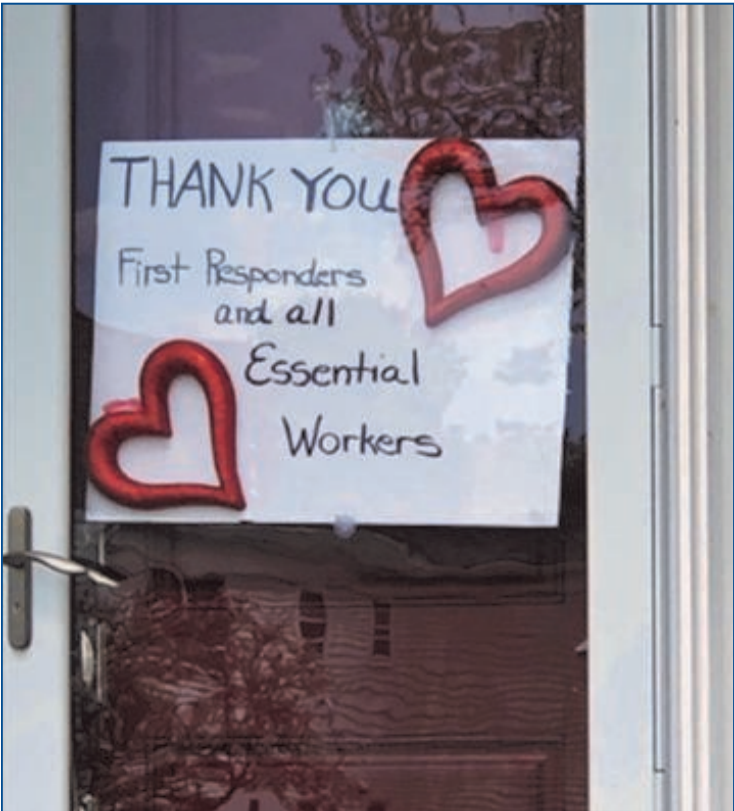 THANK YOU
First Responders
and all
Essential
Workers